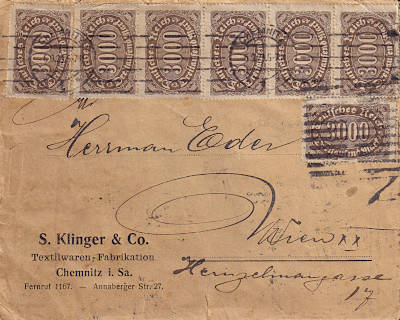 Deutsches Reich 3000
Deutsches Reich 3000
Deutsches Reich 3000
Deutsches Reich 3000
Deutsches Reich 3000
Deutsches Reich 3000
Deutsches Reich 3000
Herrman Eder
Wien xx
S. Klinger & Co.
Textilwaren-Fabrikation
Chemnitz i. Sa.
Fernruf 1167. — Annaberger Str. 27.
17